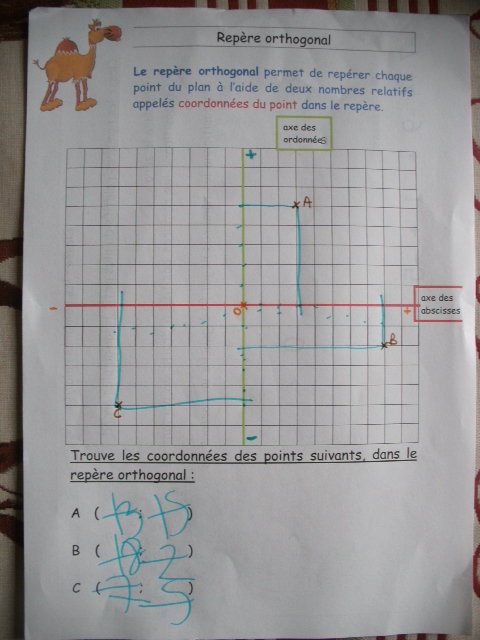 Repère orthogonal
Le repère orthogonal permet de repérer chaque
point du plan à l'aide de deux nombres relatifs
appelés coordonnées du point dans le repère.
axe des
ordonnées
+
A
-
O
+
axe des
abscisses
B
C
-
Trouve les coordonnées des points suivants, dans le
repère orthogonal :
A (+3 ; +5)
B (+8 ; -2)
C (-7 ; -5)